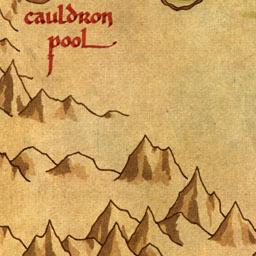 cauldron
pool